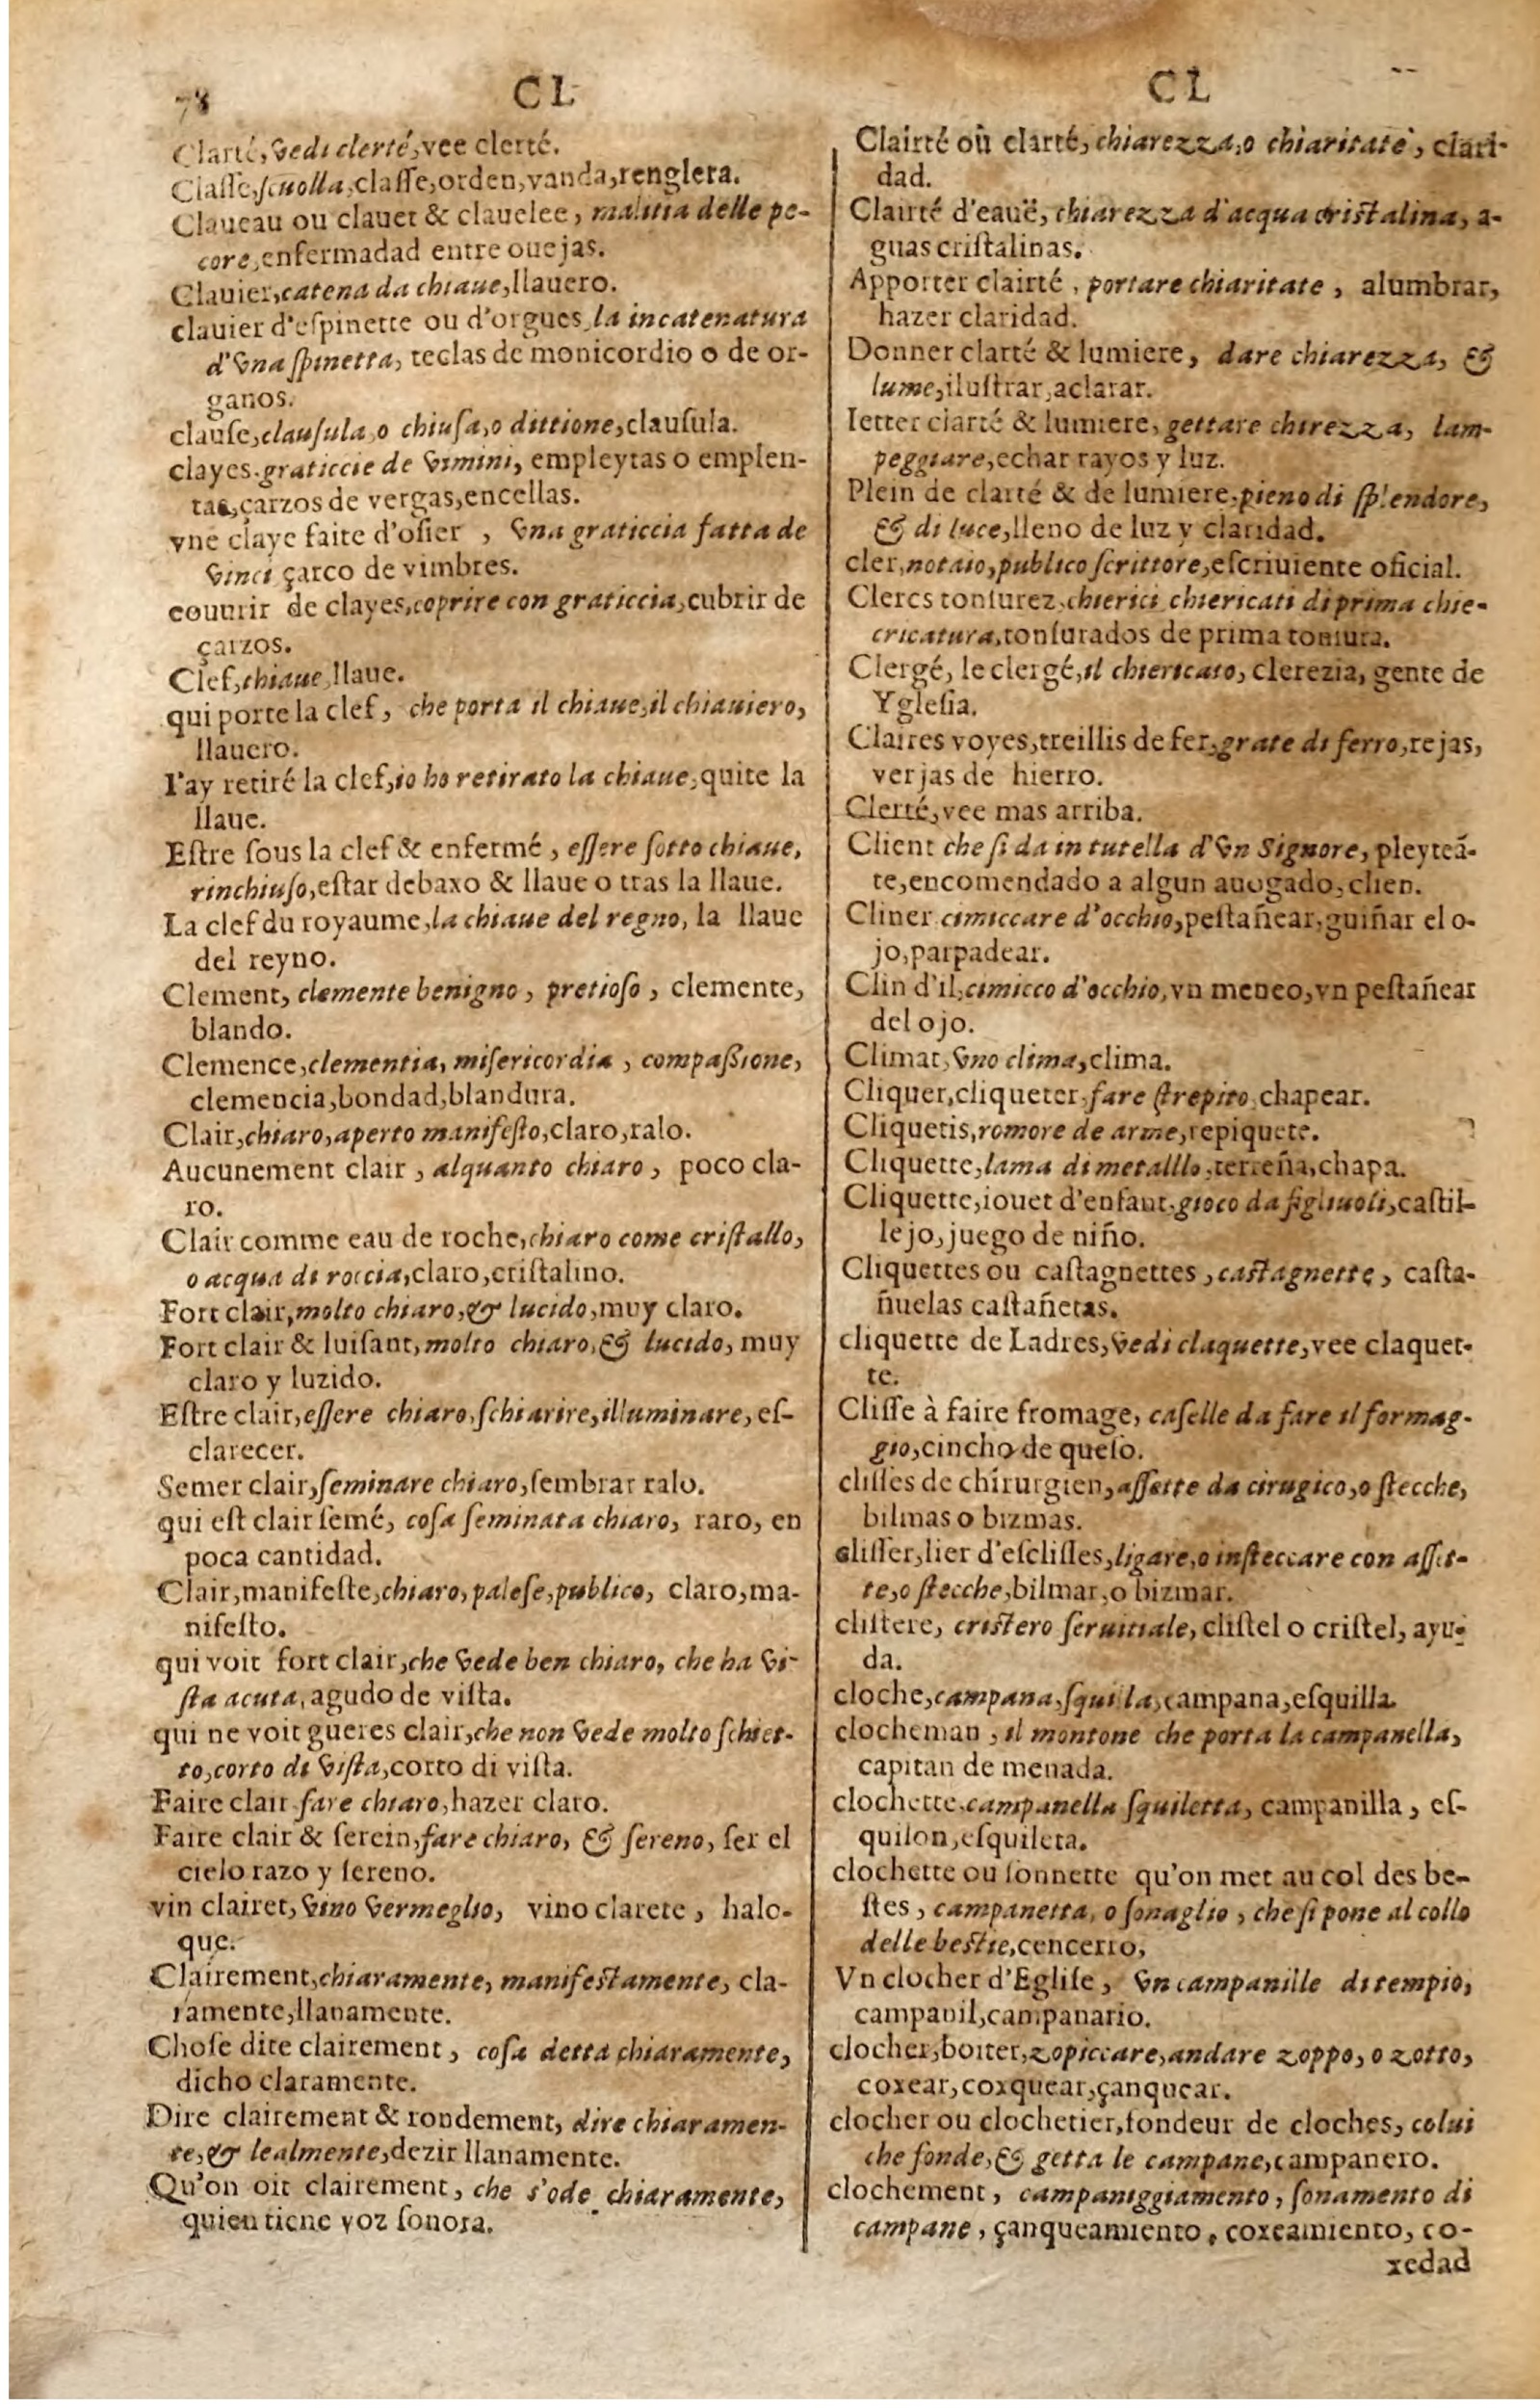 78
CL
Clarté, vedi clerté, vee clerté.
Classe, scuolla, classe, orden, vanda, renglera.
Claueau ou clauet & clauelee, malitia delle pe-
core, enfermadad entre ouejas.
Clauier, catena da chiaue, llauero.
clauier d'espinette ou d'orgues, la incatenatura
d'vna spinetta, teclas de monicordio o de or-
ganos.
clause, clausula, o chiusa, o dittione, clausula.
clayes, graticcie de vimini, empleytas o emplen-
tas, çarzos de vergas, encellas.
vne claye faite d'osier, vna graticcia fatta de
vinci çarco de vimbres.
couurir de clayes, coprire con graticcia, cubrir de
çarzos.
Clef, chiaue, llaue.
qui porte la clef, che porta il chiaue, il chiauiero,
llauero.
I'ay retiré la clef, io ho retirato la chiaue, quite la
llaue.
Estre sous la clef & enfermé, essere sotto chiaue,
rinchiuso, estar debaxo & llaue o tras la llaue.
La clef du royaume, la chiaue del regno, la llaue
del reyno.
Clement, clemente benigno, pretioso, clemente,
blando.
Clemence, clementia, misericordia, compaßione,
clemencia, bondad, blandura.
Clair, chiaro, aperto manifesto, claro, ralo.
Aucunement clair, alquanto chiaro, poco cla-
ro.
Clair comme eau de roche, chiaro come cristallo,
o acqua di roccia, claro, cristalino.
Fort clair, molto chiaro, & lucido, muy claro.
Fort clair & luisant, molto chiaro, & lucido, muy
claro y luzido.
Estre clair, essere chiaro, schiarire, illuminare, es-
clarecer.
Semer clair, seminare chiaro, sembrar ralo.
qui est clair semé, cosa seminata chiaro, raro, en
poca cantidad.
Clair, manifeste, chiaro, palese, publico, claro, ma-
nifesto.
qui voit fort clair, che vede ben chiaro, che ha vi-
sta acuta, agudo de vista.
qui ne voit gueres clair, che non vede molto schiet-
to, corto di vista, corto di vista.
Faire clair fare chiaro, hazer claro.
Faire clair & serein, fare chiaro, & sereno, ser el
cielo razo y sereno.
vin clairet, vino vermeglio, vino clarete, halo-
que.
Clairement, chiaramente, manifestamente, cla-
ramente, llanamente.
Chose dite clairement, cosa detta chiaramente,
dicho claramente.
Dire clairement & rondement, dire chiaramen-
te, & lealmente, dezir llanamente.
Qu'on oit clairement, che s'ode chiaramente,
quien tiene voz sonora.
CL
Clairté où clarté, chiarezza, o chiaritate, clari-
dad.
Clairté d'eauë, chiarezza d'acqua cristalina, a-
guas cristalinas.
Apporter clairté, portare chiaritate, alumbrar,
hazer claridad.
Donner clarté & lumiere, dare chiarezza, &
lume, ilustrar, aclarar.
Ietter clarté & lumiere, gettare chirezza, lam-
peggiare, echar rayos y luz.
Plein de clarté & de lumiere, pieno di splendore,
& di luce, lleno de luz y claridad.
cler, notaio, publico scrittore, escriuiente oficial.
Clercs tonsurez, chierici chiericati di prima chie-
cricatura, tonsurados de prima tonsura.
Clergé, le clergé, il chiericato, clerezia, gente de
Yglesia.
Claires voyes, treillis de fer, grate di ferro, rejas,
verjas de hierro.
Clerté, vee mas arriba.
Client che si da in tutella d'vn Signore, pleyteã-
te, encomendado a algun auogado, clien.
Cliner cimiccare d'occhio, pestañear, guiñar el o-
jo, parpadear.
Clin d'il, cimicco d'occhio, vn meneo, vn pestañear
del ojo.
Climat, vno clima, clima.
Cliquer, cliqueter, fare strepito, chapear.
Cliquetis, romore de arme, repiquete.
Cliquette, lama di metalllo, terreña, chapa.
Cliquette, iouet d'enfant, gioco da figliuoli, castil-
lejo, juego de niño.
Cliquettes ou castagnettes, castagnette, casta-
ñuelas castañetas.
cliquette de Ladres, vedi claquette, vee claquet-
te.
Clisse à faire fromage, caselle da fare il formag-
gio, cincho de queso.
clisses de chirurgien, assette da cirugico, o stecche,
bilmas o bizmas.
clisser, lier d'esclisses, ligare, o insteccare con asset-
te, o stecche, bilmar, o bizmar.
clistere, cristero seruitiale, clistel o cristel, ayu-
da.
cloche, campana, squilla, campana, esquilla
clocheman, il montone che porta la campanella,
capitan de menada.
clochette, campanella squiletta, campanilla, es-
quilon, esquileta.
clochette ou sonnette qu'on met au col des be-
stes, campanetta, o sonaglio, che si pone al collo
delle bestie, cencerro,
Vn clocher d'Eglise, vn campanille di tempio,
campanil, campanario.
clocher, boiter, zopiccare, andare zoppo, o zotto,
coxear, coxquear, çanquear.
clocher ou clochetier, fondeur de cloches, colui
che fonde, & getta le campane, campanero.
clochement, campaniggiamento, sonamento di
campane, çanqueamiento, coxeamiento, co-
xedad